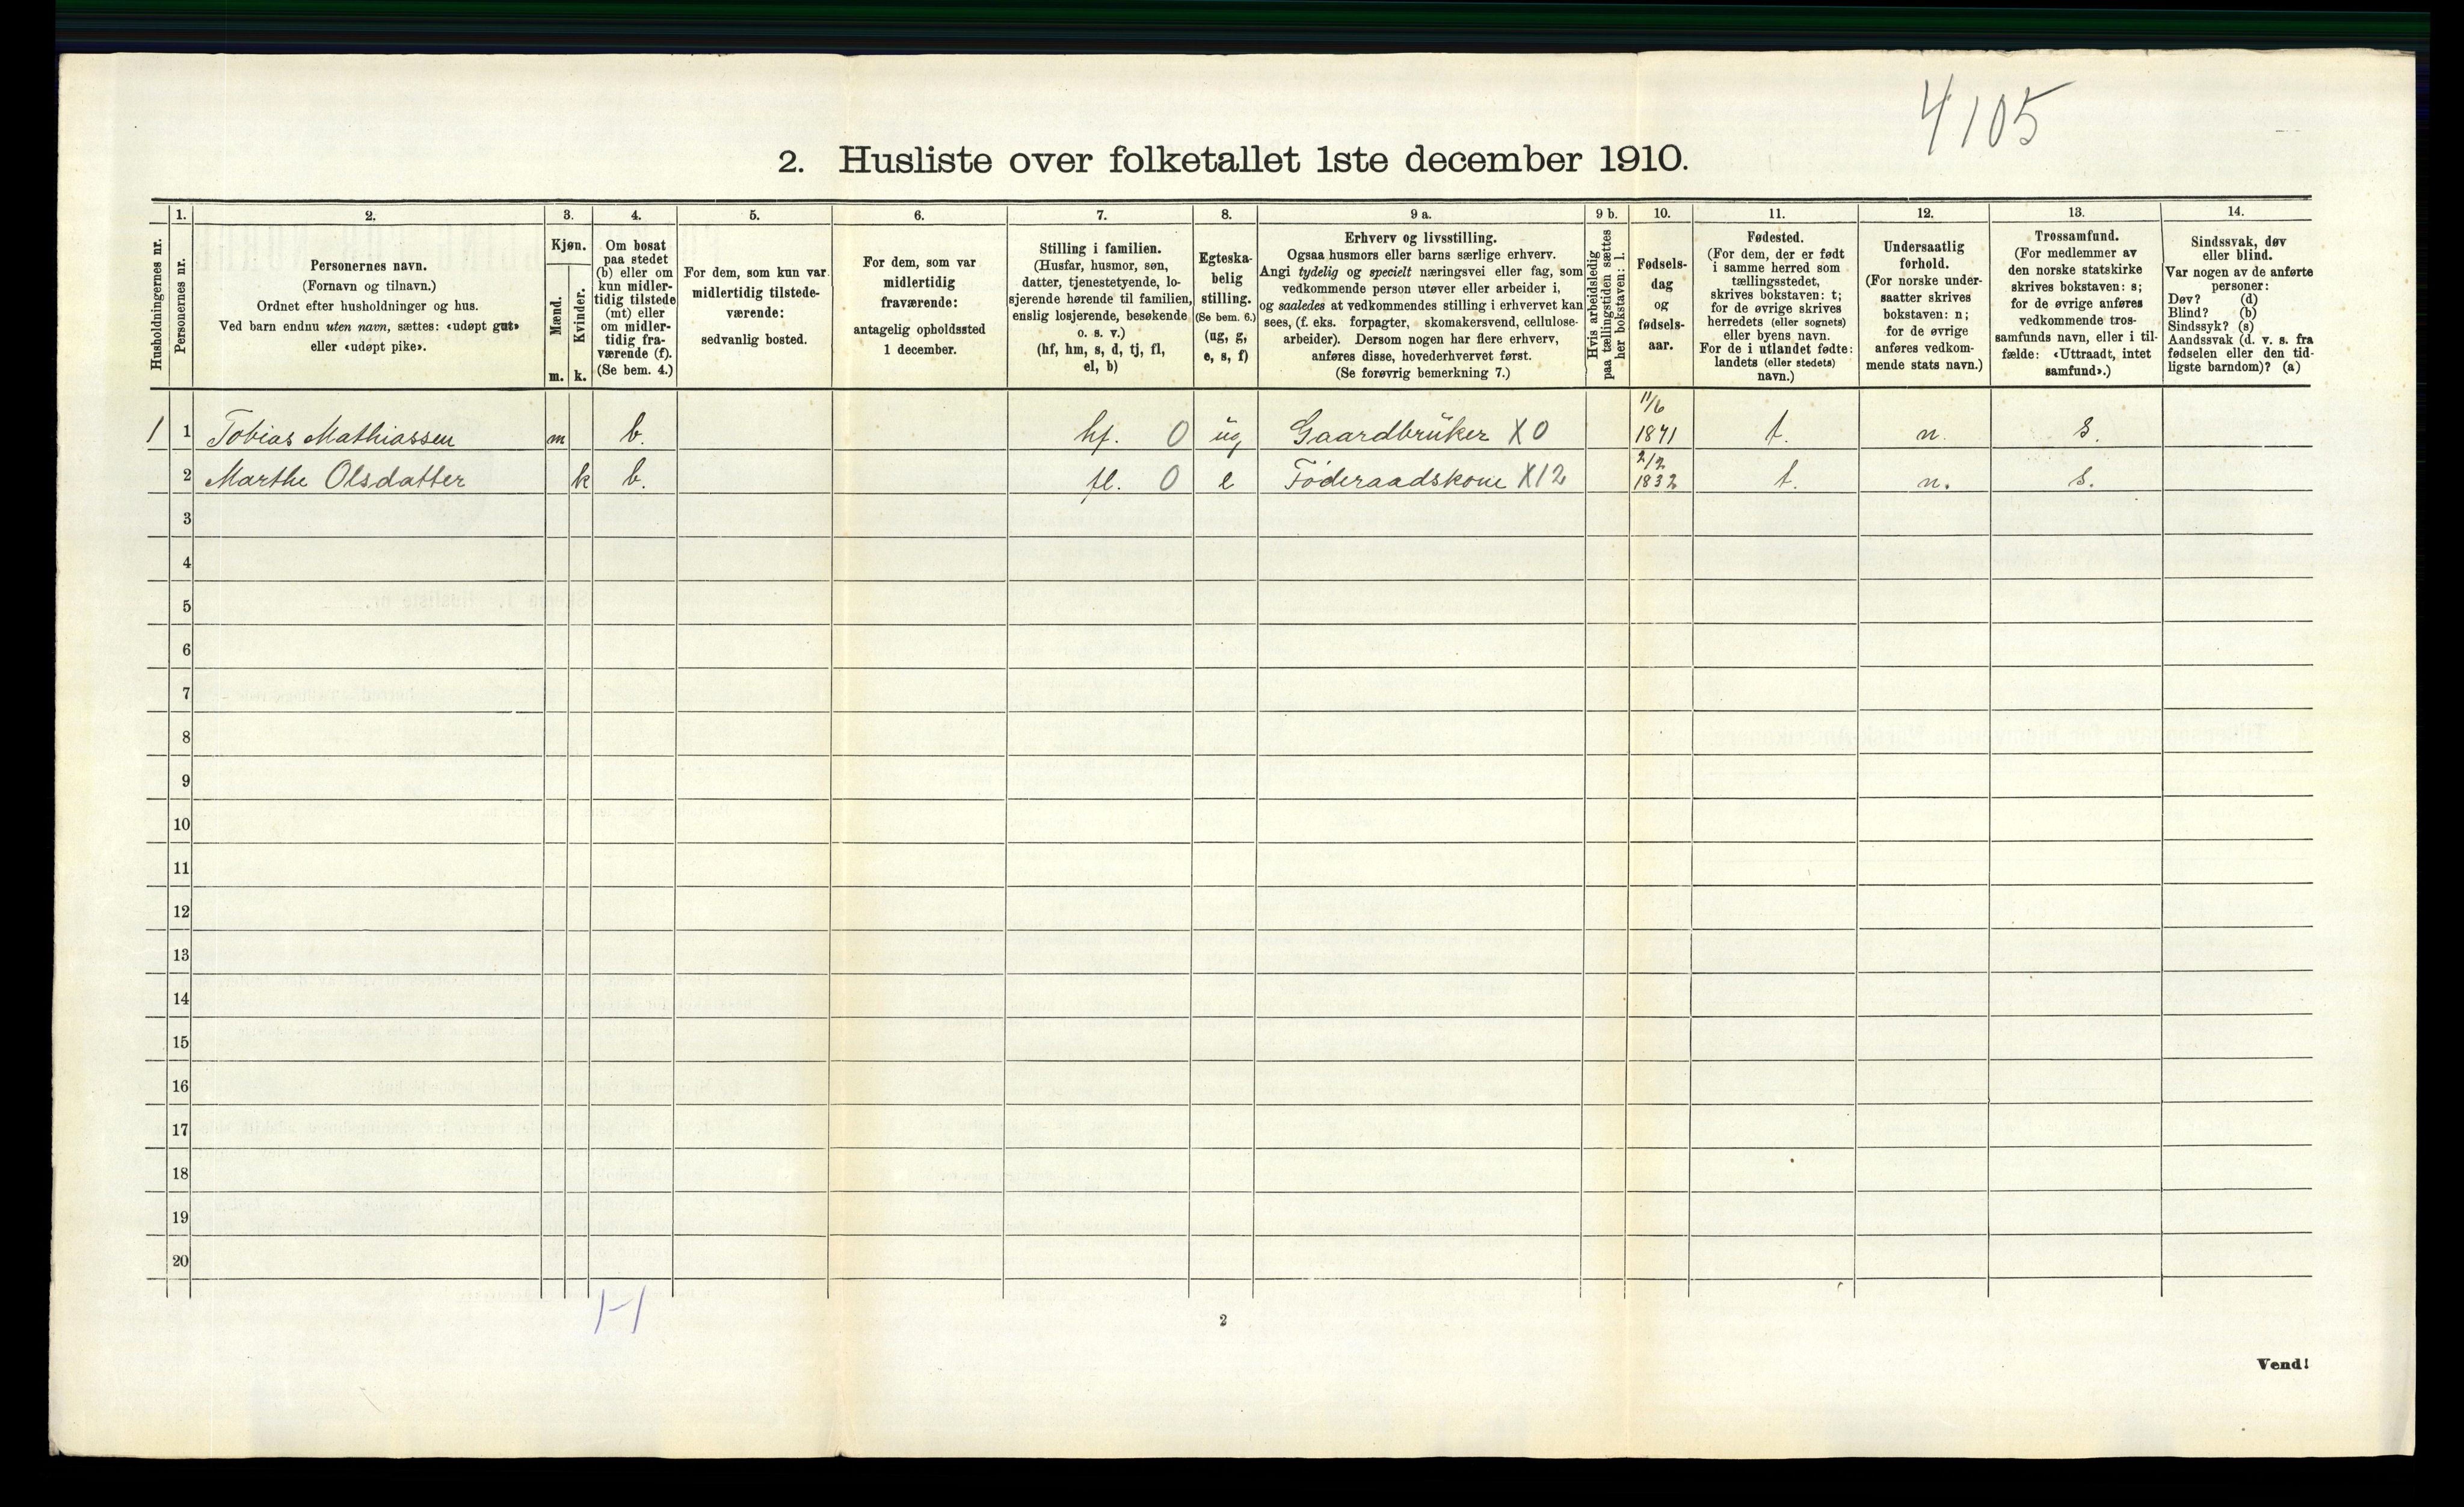 4105
2. Husliste over folketallet 1ste december 1910.
Husholdningernes nr.
1.
Personernes nr.
2.
Personernes navn.
(Fornavn og tilnavn.)
Ordnet efter husholdninger og hus.
Ved barn endnu uten navn, sættes: «udøpt gut»
eller «udøpt pike».
3.
Kjøn.
Mænd.
Kvinder.
m. k.
4.
Om bosat
paa stedet
(b) eller om
kun midler-
tidig tilstede
(mt) eller
om midler-
tidig fra-
værende (f).
(Se bem. 4.)
5.
For dem, som kun var
midlertidig tilstede-
værende:
sedvanlig bosted.
6.
For dem, som var
midlertidig
fraværende:
antagelig opholdssted
1 december.
7.
Stilling i familien.
(Husfar, husmor, søn,
datter, tjenestetyende, lo-
sjerende hørende til familien,
enslig losjerende, besøkende
o. s. v.)
(hf, hm, s, d, tj, fl,
el, b)
8.
Egteska-
belig
stilling.
(Se bem. 6.)
(ug, g,
e, s, f)
9 a.
Erhverv og livsstilling.
Ogsaa husmors eller barns særlige erhverv.
Angi tydelig og specielt næringsvei eller fag, som
vedkommende person utøver eller arbeider i,
og saaledes at vedkommendes stilling i erhvervet kan
sees, (f. eks. forpagter, skomakersvend, cellulose-
arbeider). Dersom nogen har flere erhverv,
anføres disse, hovederhvervet først.
(Se forøvrig bemerkning 7.)
9 b.
Hvis arbeidsledig
paa tællingstiden sættes
her bokstaven: l.
10.
Fødsels-
dag
og
fødsels-
aar.
11.
Fødested.
(For dem, der er født
i samme herred som
tællingsstedet,
skrives bokstaven: t;
for de øvrige skrives
herredets (eller sognets)
eller byens navn.
For de i utlandet fødte:
landets (eller stedets)
navn.)
12.
Undersaatlig
forhold.
(For norske under-
saatter skrives
bokstaven: n;
for de øvrige
anføres vedkom-
mende stats navn.)
13.
Trossamfund.
(For medlemmer av
den norske statskirke
skrives bokstaven: s;
for de øvrige anføres
vedkommende tros-
samfunds navn, eller i til-
fælde: «Uttraadt, intet
samfund».)
14.
Sindssvak, døv
eller blind.
Var nogen av de anførte
personer:
Døv? (d)
Blind? (b)
Sindssyk? (s)
Aandssvak (d. v. s. fra
fødselen eller den tid-
ligste barndom)? (a)
1 1 Tobias Mathiassen m b. hf. 0 ug Gaardbruker X0 11/6 1871 t. n. s.
2 Marthe Olsdatter k b. fl. 0 e Føderaadskone X12 2/2 1832 t. n. s.
3
4
5
6
7
8
9
10
11
12
13
14
15
16
17
18
19
20
1-1
2
Vend!